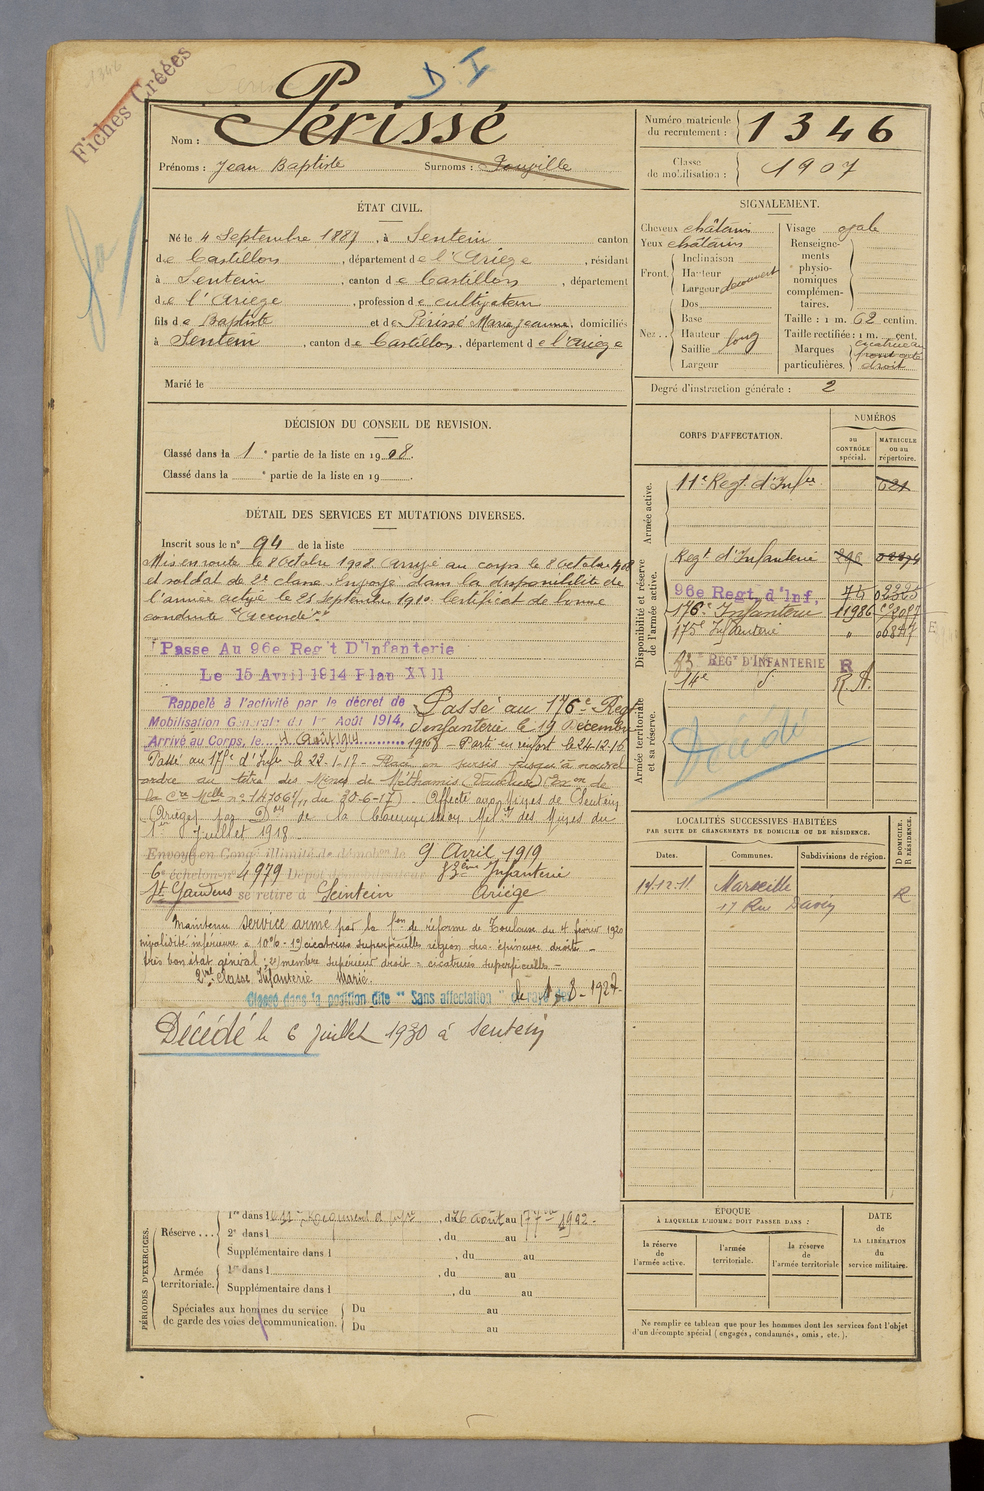 1346
Fiches Créées
D I
Nom : Périssé
Prénoms : Jean Baptiste Surnoms :
Numéro matricule du recrutement : 1346
Classe de mobilisation : 1907
ÉTAT CIVIL.
Né le 4 Septembre 1887, à Sentein canton
de Castillon, département de l'Ariège, résidant
à Sentein, canton de Castillon, département
de l'Ariège, profession de cultivateur
fils de Baptiste et de Périssé Marie Jeanne, domiciliés
à Sentein, canton de Castillon, département de l'Ariège
Marié le
SIGNALEMENT.
Cheveux châtains
Yeux châtains
Front. Inclinaison
Hauteur
Largeur découvert
Nez.. Dos
Base
Hauteur long
Saillie
Largeur
Visage ovale
Renseignements physionomiques complémentaires.
Taille : 1 m. 62 centim.
Taille rectifiée : 1 m. cent.
Marques particulières. cicatrice au front côté droit
Degré d'instruction générale : 2
DÉCISION DU CONSEIL DE REVISION.
Classé dans la 1e partie de la liste en 1908.
Classé dans la e partie de la liste en 19 .
DÉTAIL DES SERVICES ET MUTATIONS DIVERSES.
Inscrit sous le n° 94 de la liste
Mis en route le 8 Octobre 1908. Arrivé au corps le 8 Octobre 1908
et soldat de 2e classe. Envoyé dans la disponibilité de
l'armée active le 25 Septembre 1910. Certificat de bonne
conduite "Accordé".
Passe Au 96e Reg't D'Infanterie
Le 15 Avril 1914 Plan XVII
Rappelé à l'activité par le décret de
Mobilisation Générale du 1er Août 1914,
Arrivé au Corps, le 4 Août 1914
Passé au 176e Regt
d'Infanterie le 19 Décembre
1916 - Parti en renfort le 24-12-16
Passé au 175e d'Infie le 22-1-17 - Placé en sursis jusqu'à nouvel
ordre au titre des Mines de Méthamis (Vaucluse) (Exon de
la Cre Melle n° 14706 1/11 du 30-6-17). Affecté aux Mines de Sentein
(Ariège) par Don de la Commission Milre des Mines du
1er Juillet 1918.
Envoyé en Congé illimité de démobon le 9 Avril 1919
6e échelon n° 4979 Dépôt démobilisateur 83ème Infanterie
St Gaudens se retire à Seintein Ariège
Maintenu service armé par la Con de réforme de Toulouse du 4 février 1920
invalidité inférieure à 10% - 1°) cicatrices superficielles région sus-épineuse droite -
très bon état général ; 2°) membre supérieur droit = cicatrices superficielles -
2ème classe Infanterie Marié.
Classé dans la position dite "Sans affectation" le 1-8-1927.
Décédé le 6 Juillet 1930 à Sentein
CORPS D'AFFECTATION.
NUMÉROS
au CONTRÔLE spécial.
MATRICULE ou au répertoire.
Armée active.
11e Regt. d'Infie 621
Disponibilité et réserve de l'armée active.
Regt d'Infanterie
96e Regt d'Inf, 75 02325
176e Infanterie 11986
175e Infanterie " 06847
83e REGt D'INFANTERIE R
14e d° R.A.
Armée territoriale et sa réserve.
Décédé
LOCALITÉS SUCCESSIVES HABITÉES
PAR SUITE DE CHANGEMENTS DE DOMICILE OU DE RÉSIDENCE.
Dates. Communes. Subdivisions de région. D DOMICILE. R RÉSIDENCE.
14.12.11. Marseille R
17 Rue Davin
PÉRIODES D'EXERCICES.
Réserve... 1re dans le 11e Régiment d'Infie, du 26 Août au 17 7bre 1912.
2e dans l , du au
Supplémentaire dans l , du au
Armée territoriale. 1re dans l , du au
Supplémentaire dans l , du au
Spéciales aux hommes du service de garde des voies de communication. Du au
Du au
ÉPOQUE
À LAQUELLE L'HOMME DOIT PASSER DANS :
la réserve de l'armée active.
l'armée territoriale.
la réserve de l'armée territoriale
DATE de LA LIBÉRATION du service militaire.
Ne remplir ce tableau que pour les hommes dont les services font l'objet
d'un décompte spécial (engagés, condamnés, omis, etc.).